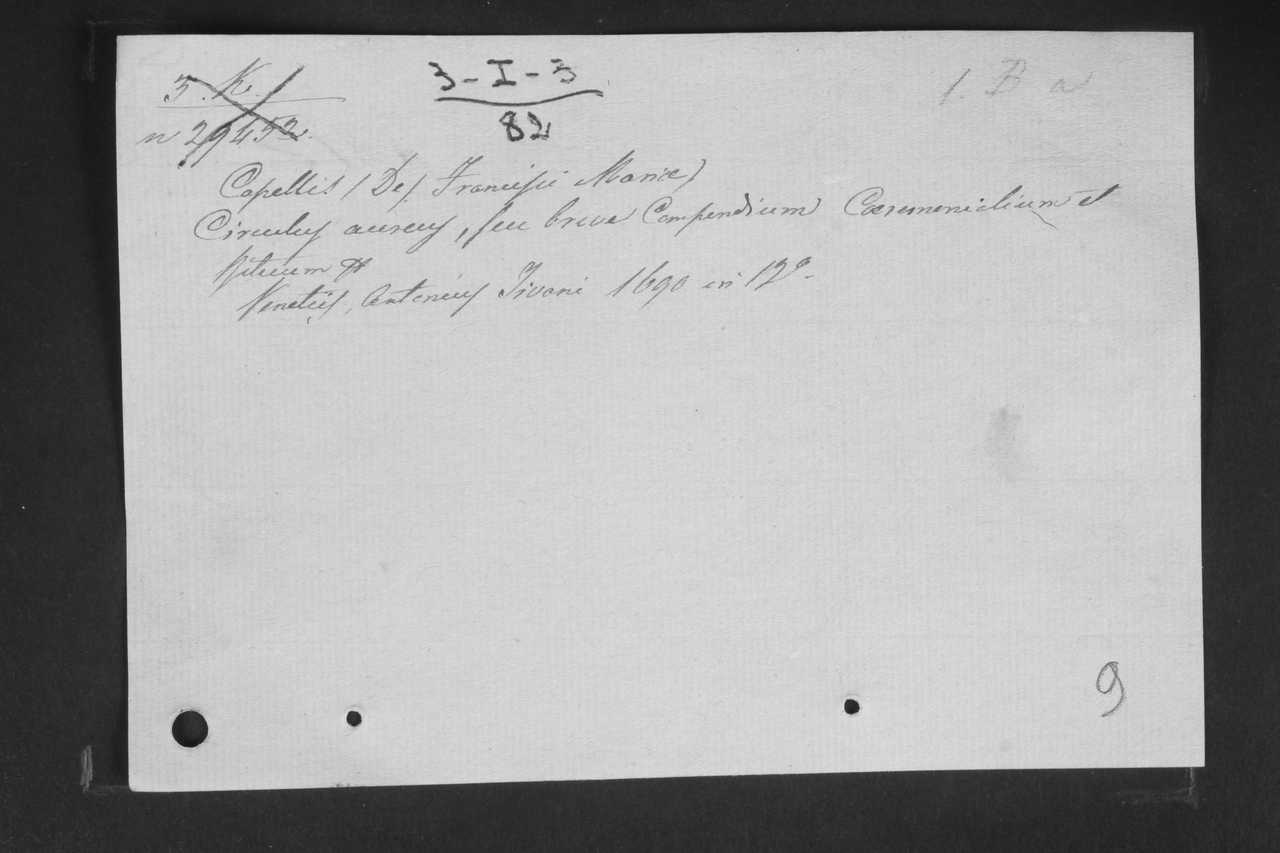 5. K.
n 29452.
3-I-3
82
1. B a
Capellis (De) Francisci Mariæ
Circulus aureus, seu breve Compendium Cæremonialium et
Rituum &
Venetiis, Antonius Tivani 1690 in 12º.
9